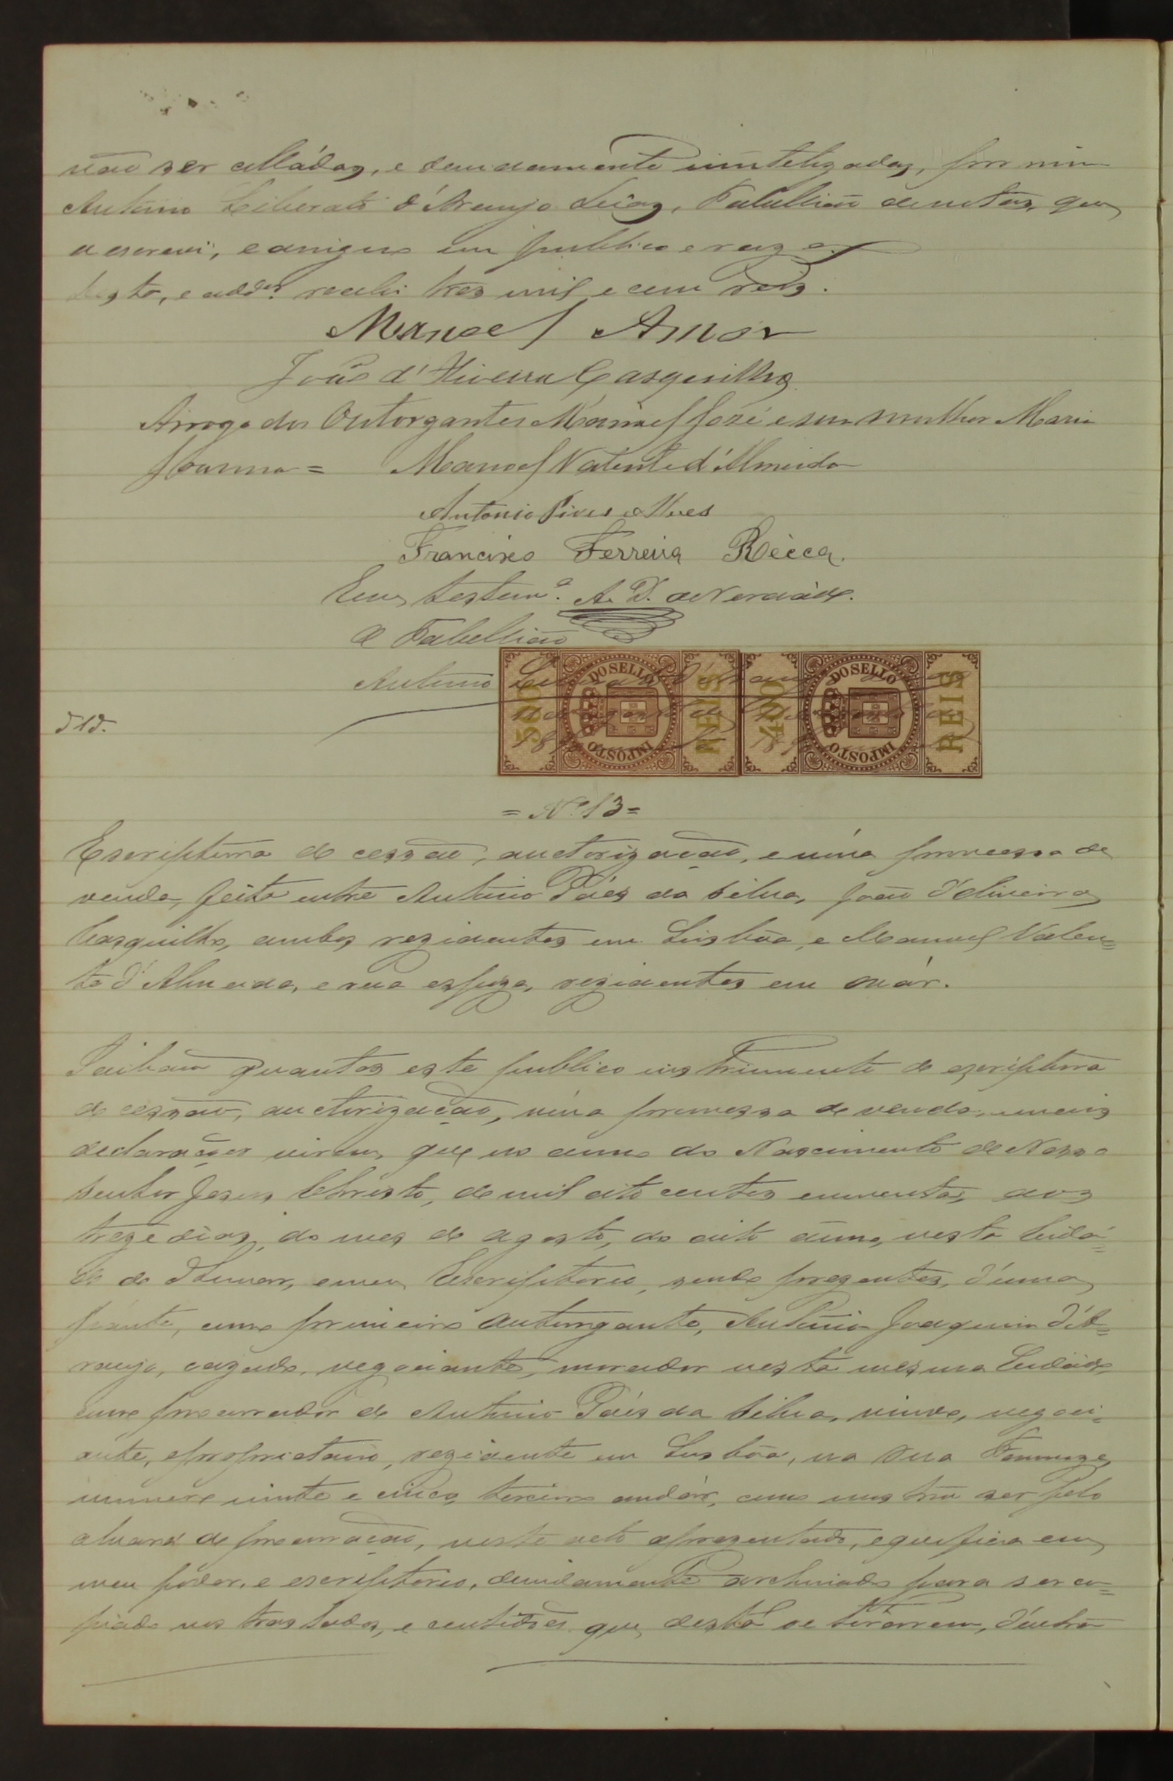 não ser colládas, e devidamente inutelizadas, por mim
Antonio Liberato d'Araujo Leão, Tabellião de notas, que
a escrevi, e assigno em publico e razo.
Desta, e add.os recebi tres mil e cem reis.
Manoel Amor
João d'Oliveira Casquilho
Arrogo dos Outorgantes Manoel José e sua mulher Maria
Joanna = Manoel Valente d'Almeida
Antonio Pires Alves
Francisco Ferreira Rècca.
Em testem.º A. D. de Verdade.
O Tabellião
Antonio
500 REIS IMPOSTO DO SELLO 400 REIS IMPOSTO DO SELLO
= Nº 13 =
Escriptura de cessão, auctorização, e uma promessa de
venda, feita entre Antonio Páes da Silva, João d'Oliveira
Casquilho, ambos rezidentes em Lisbôa, e Manoel Valen=
te d'Almeida, e sua espoza, rezidentes em
Saibam quantos este publico instrumento de escriptura
de cessão, auctorização, uma promessa de venda, e mais
declarações virem, que no anno do Nascimento de Nosso
Senhor Jesus Christo, de mil oito centos e noventa, aos
treze dias, do mes de agosto, do dito anno, nesta Cida=
de de Thomar, e meu Escriptorio, sendo prezentes, d'uma
parte, como primeiro outorgante, Antonio Joaquim d'A=
raujo, cazado, negociante, morador nesta mesma Cidade,
como procurador de Antonio Páes da Silva, viuvo, negoci=
ante, e proprietario, rezidente em Lisbôa, na rua
numero vinte e cinco, terceiro andár, como mostrou ser pelo
alvará de procuração, neste acto aprezentado, e que fica em
meu poder, e escriptorio, devidamente archivado para ser co=
piado nos traslados, e certidões que desta se tirarem, d'outra